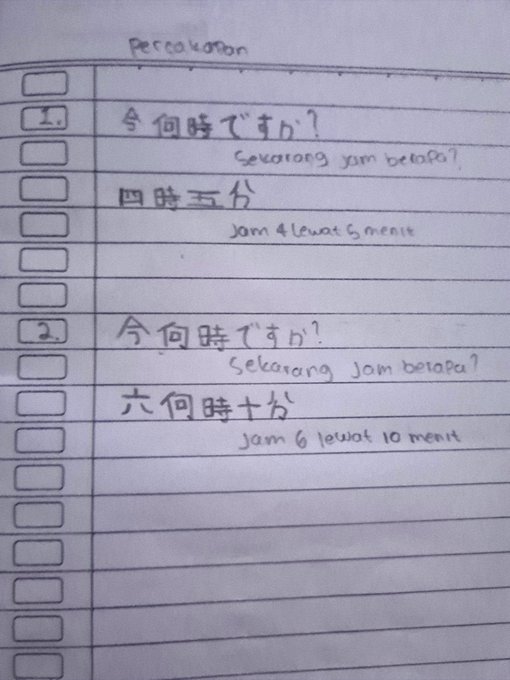 Percakapan
1. 今何時ですか?
Sekarang jam berapa?
四時五分
Jam 4 lewat 5 menit
2. 今何時ですか?
Sekarang jam berapa?
六何時十分
Jam 6 lewat 10 menit